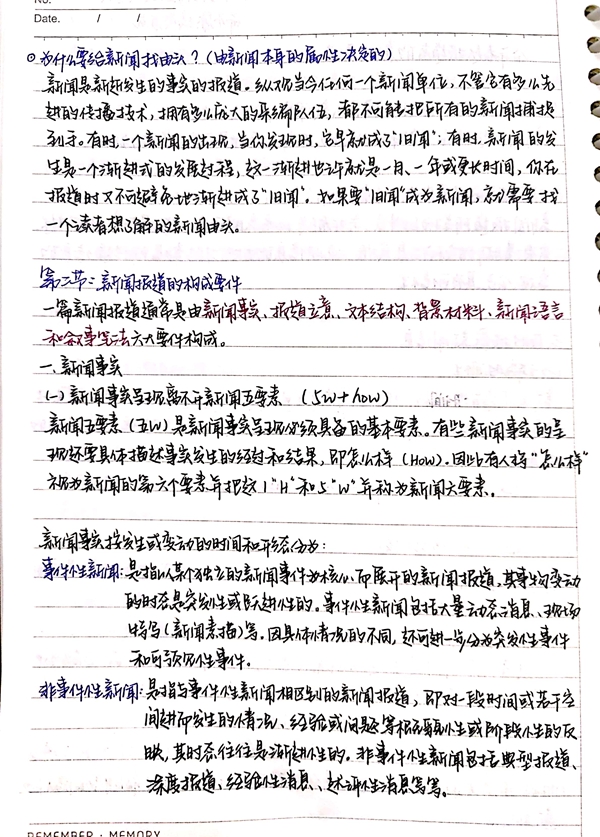 No.
Date.    /    /
为什么要给新闻找由头？（由新闻本身的属性决定的）
新闻是新近发生的事实的报道。纵观当今任何一个新闻单位，不管它有多么先
进的传播技术，拥有多么庞大的采编队伍，都不可能把所有的新闻捕捉
到手。有时一个新闻的出现，当你发现时，它早就成了"旧闻"；有时，新闻的发
生是一个渐进式的发展过程，这一渐进也许就是一月、一年或更长时间，你在
报道时又不可避免地渐进成了"旧闻"。如果要"旧闻"成为新闻，就需要找
一个读者想了解的新闻由头。
第二节：新闻报道的构成要件
一篇新闻报道通常是由新闻事实、报道立意、文本结构、背景材料、新闻语言
和叙事笔法六大要件构成。
一、新闻事实
（一）新闻事实呈现离不开新闻五要素 （5W+how）
新闻五要素（五W）是新闻事实呈现必须具备的基本要素。有些新闻事实的呈
现还要具体描述事实发生的经过和结果，即怎么样（How）。因此有人将"怎么样"
视为新闻的第六个要素并把这1"H"和5"W"并称为新闻六要素。
新闻事实按发生或变动的时间和形态分为：
事件性新闻：是指以某个独立的新闻事件为核心而展开的新闻报道，其事物变动
的时态是突发性或跃进性的。事件性新闻包括大量动态消息、现场
特写（新闻素描）等。因具体情况的不同，还可进一步分为突发性事件
和可预见性事件。
非事件性新闻：是指与事件性新闻相区别的新闻报道，即对一段时间或若干空
间进而发生的情况、经验或问题等概括性或阶段性的反
映，其时态往往是渐进性的。非事件性新闻包括典型报道、
深度报道、经验性消息、述评性消息等等。
REMEMBER · MEMORY